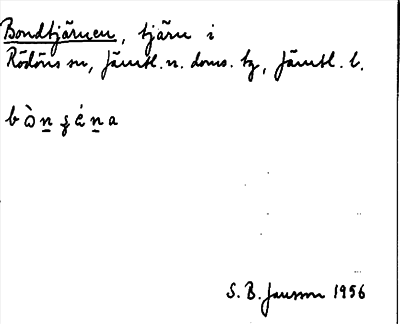 Bondtjärnen, tjärn i
Rödöns sn, Jämtl. n. doms. tg, Jämtl. l.
S. B. Jansson 1956